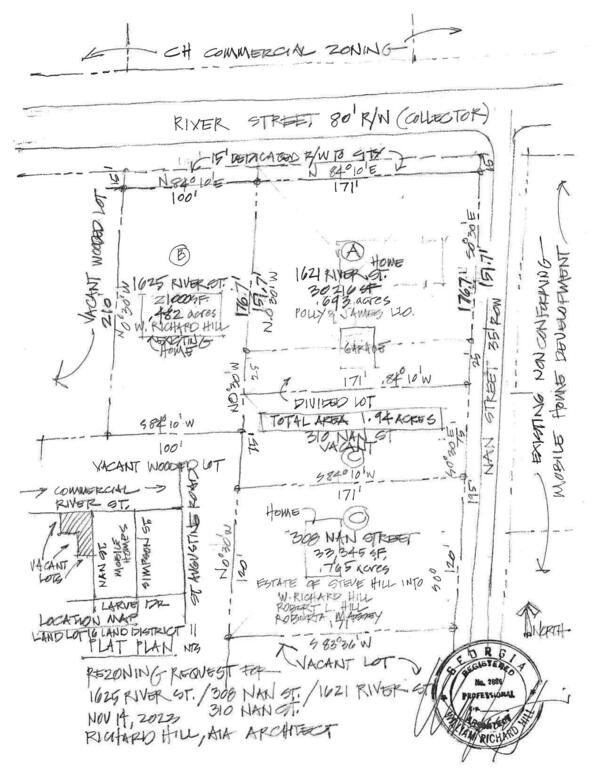 CH COMMERCIAL ZONING
RIVER STREET 80' R/W (COLLECTOR)
15' DEDICATED R/W TO CITY
N 84°10'E
100'
N 84°10'E
171'
15'
15'
VACANT WOODED LOT
210'
N0°30'W
B
1625 RIVER ST.
21000 SF
.482 acres
W. RICHARD HILL
EXISTING
HOME
176.7'
151.7'
N0°30'W
A
HOME
1621 RIVER ST.
30,216 SF
.693 acres
POLLY & JAMES
GARAGE
176.7'
S0°30'E
151.7'
25
NAN STREET 35' ROW
EXISTING NONCONFORMING
MOBILE HOME DEVELOPMENT
N0°30'W
25
171'
84°10'W
DIVIDED LOT
TOTAL AREA 1.94 ACRES
310 NAN ST
VACANT
C
S84°10'W
100'
S84°10'W
171'
S0°30'E
195'
VACANT WOODED LOT
COMMERCIAL
RIVER ST.
VACANT
LOTS
NAN ST.
MOBILE
HOMES
SIMPSON ST.
ST AUGUSTINE ROAD
LOCATION MAP
LAND LOT 16 LAND DISTRICT 11
PLAT PLAN NTS
HOME
308 NAN STREET
33,345 SF.
.765 acres
ESTATE OF STEVE HILL INTO
W. RICHARD HILL
ROBERT L. HILL
ROBERTA MASSEY
N0°30'W
120'
120'
S 83°36'W
VACANT LOT
NORTH
REZONING REQUEST FOR
1625 RIVER ST. / 308 NAN ST. / 1621 RIVER ST
310 NAN ST.
NOV 14, 2023
RICHARD HILL, AIA ARCHITECT
GEORGIA
REGISTERED
PROFESSIONAL
ARCHITECT
WILLIAM RICHARD HILL